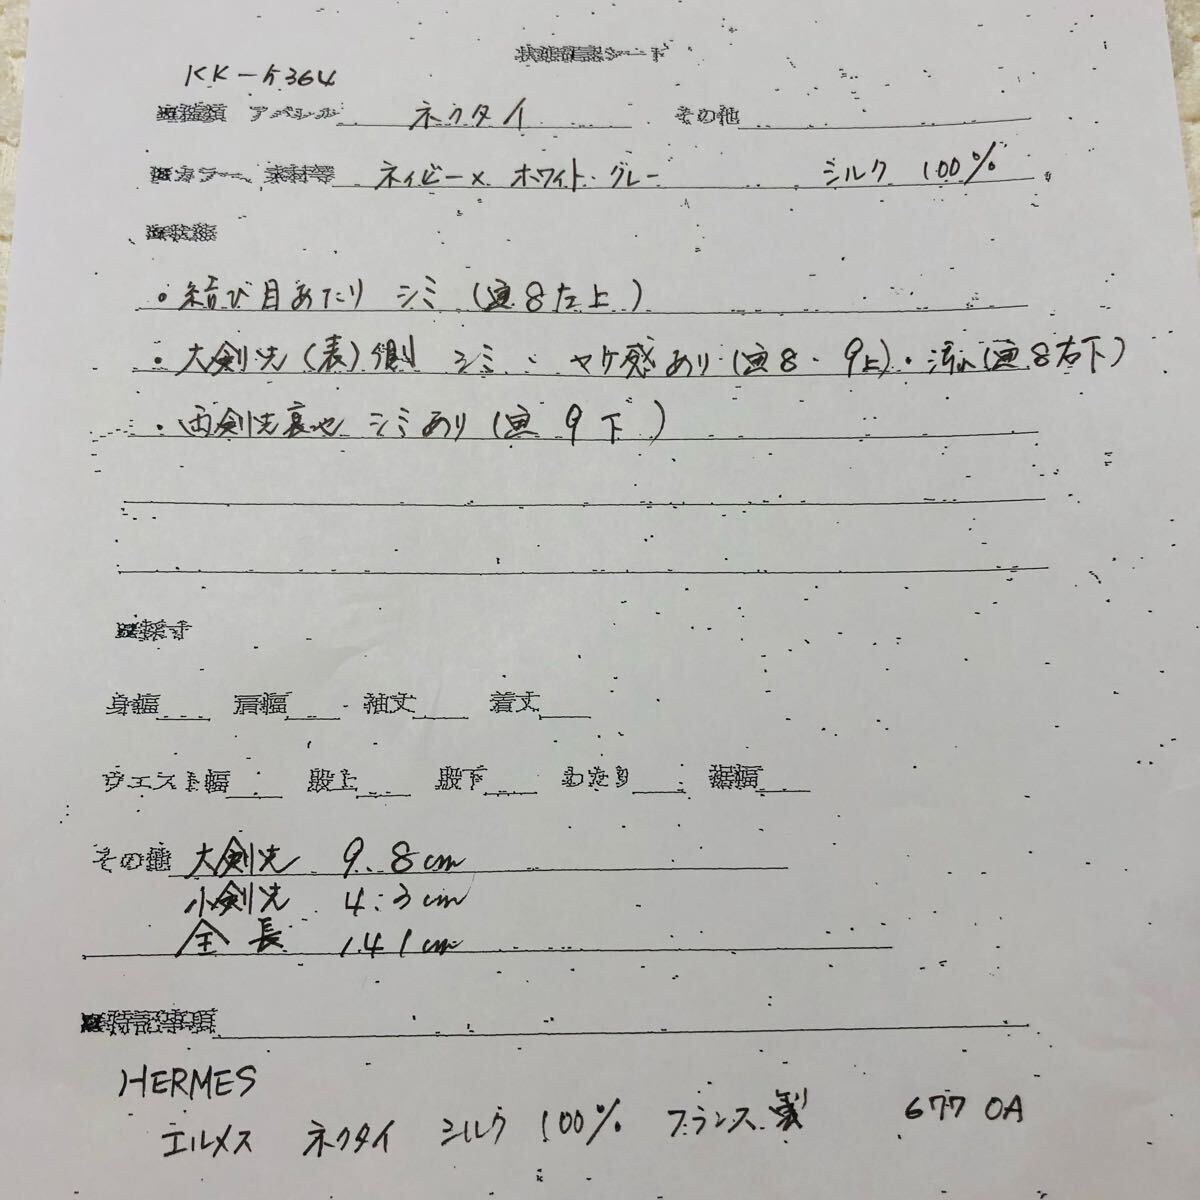 状態確認シート
KK-ケ364
■種類 アパレル ネクタイ その他
■カラー、素材等 ネイビー× ホワイト・グレー シルク 100%
■状態
・結び目あたり シミ (画8左上)
・大剣先(表)側 シミ・ヤケ感あり(画8・9上)・汚れ(画8右下)
・両剣先裏地 シミあり(画9下)
■採寸
身幅 肩幅 袖丈 着丈
ウエスト幅 股上 股下 わたり 裾幅
その他 大剣先 9.8cm
小剣先 4.3cm
全長 141cm
■特記事項
HERMES
エルメス ネクタイ シルク 100% フランス製 677 OA